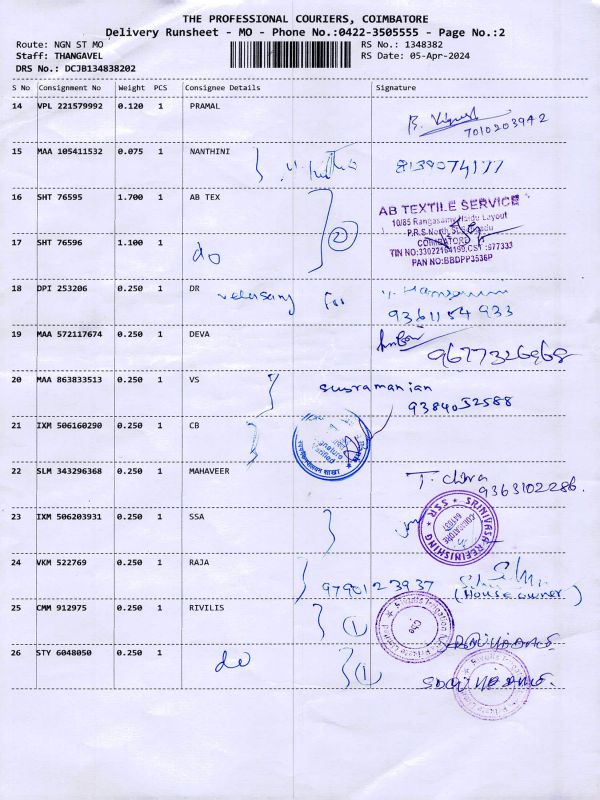 THE PROFESSIONAL COURIERS, COIMBATORE
Delivery Runsheet - MO - Phone No.:0422-3505555 - Page No.:2
Route: NGN ST MO
RS No.: 1348382
Staff: THANGAVEL
RS Date: 05-Apr-2024
DRS No.: DCJB134838202
S No Consignment No Weight PCS Consignee Details Signature
14 VPL 221579992 0.120 1 PRAMAL
7010203942
15 MAA 105411532 0.075 1 NANTHINI
8139074177
16 SHT 76595 1.700 1 AB TEX
2
AB TEXTILE SERVICE
10/85 Rangasamy Naidu Layout
COIMBATORE
PAN NO:BBDPP3536P
17 SHT 76596 1.100 1 do
18 DPI 253206 0.250 1 DR
for
9361154933
19 MAA 572117674 0.250 1 DEVA
9677326968
20 MAA 863833513 0.250 1 VS
susramanian
9384052588
21 IXM 506160290 0.250 1 CB
22 SLM 343296368 0.250 1 MAHAVEER
9363102286
23 IXM 506203931 0.250 1 SSA
SRINIVASA REFINISHING
SSR
COIMBATORE
24 VKM 522769 0.250 1 RAJA
9790123937
(House owner)
25 CMM 912975 0.250 1 RIVILIS
1
26 STY 6048050 0.250 1 do
1